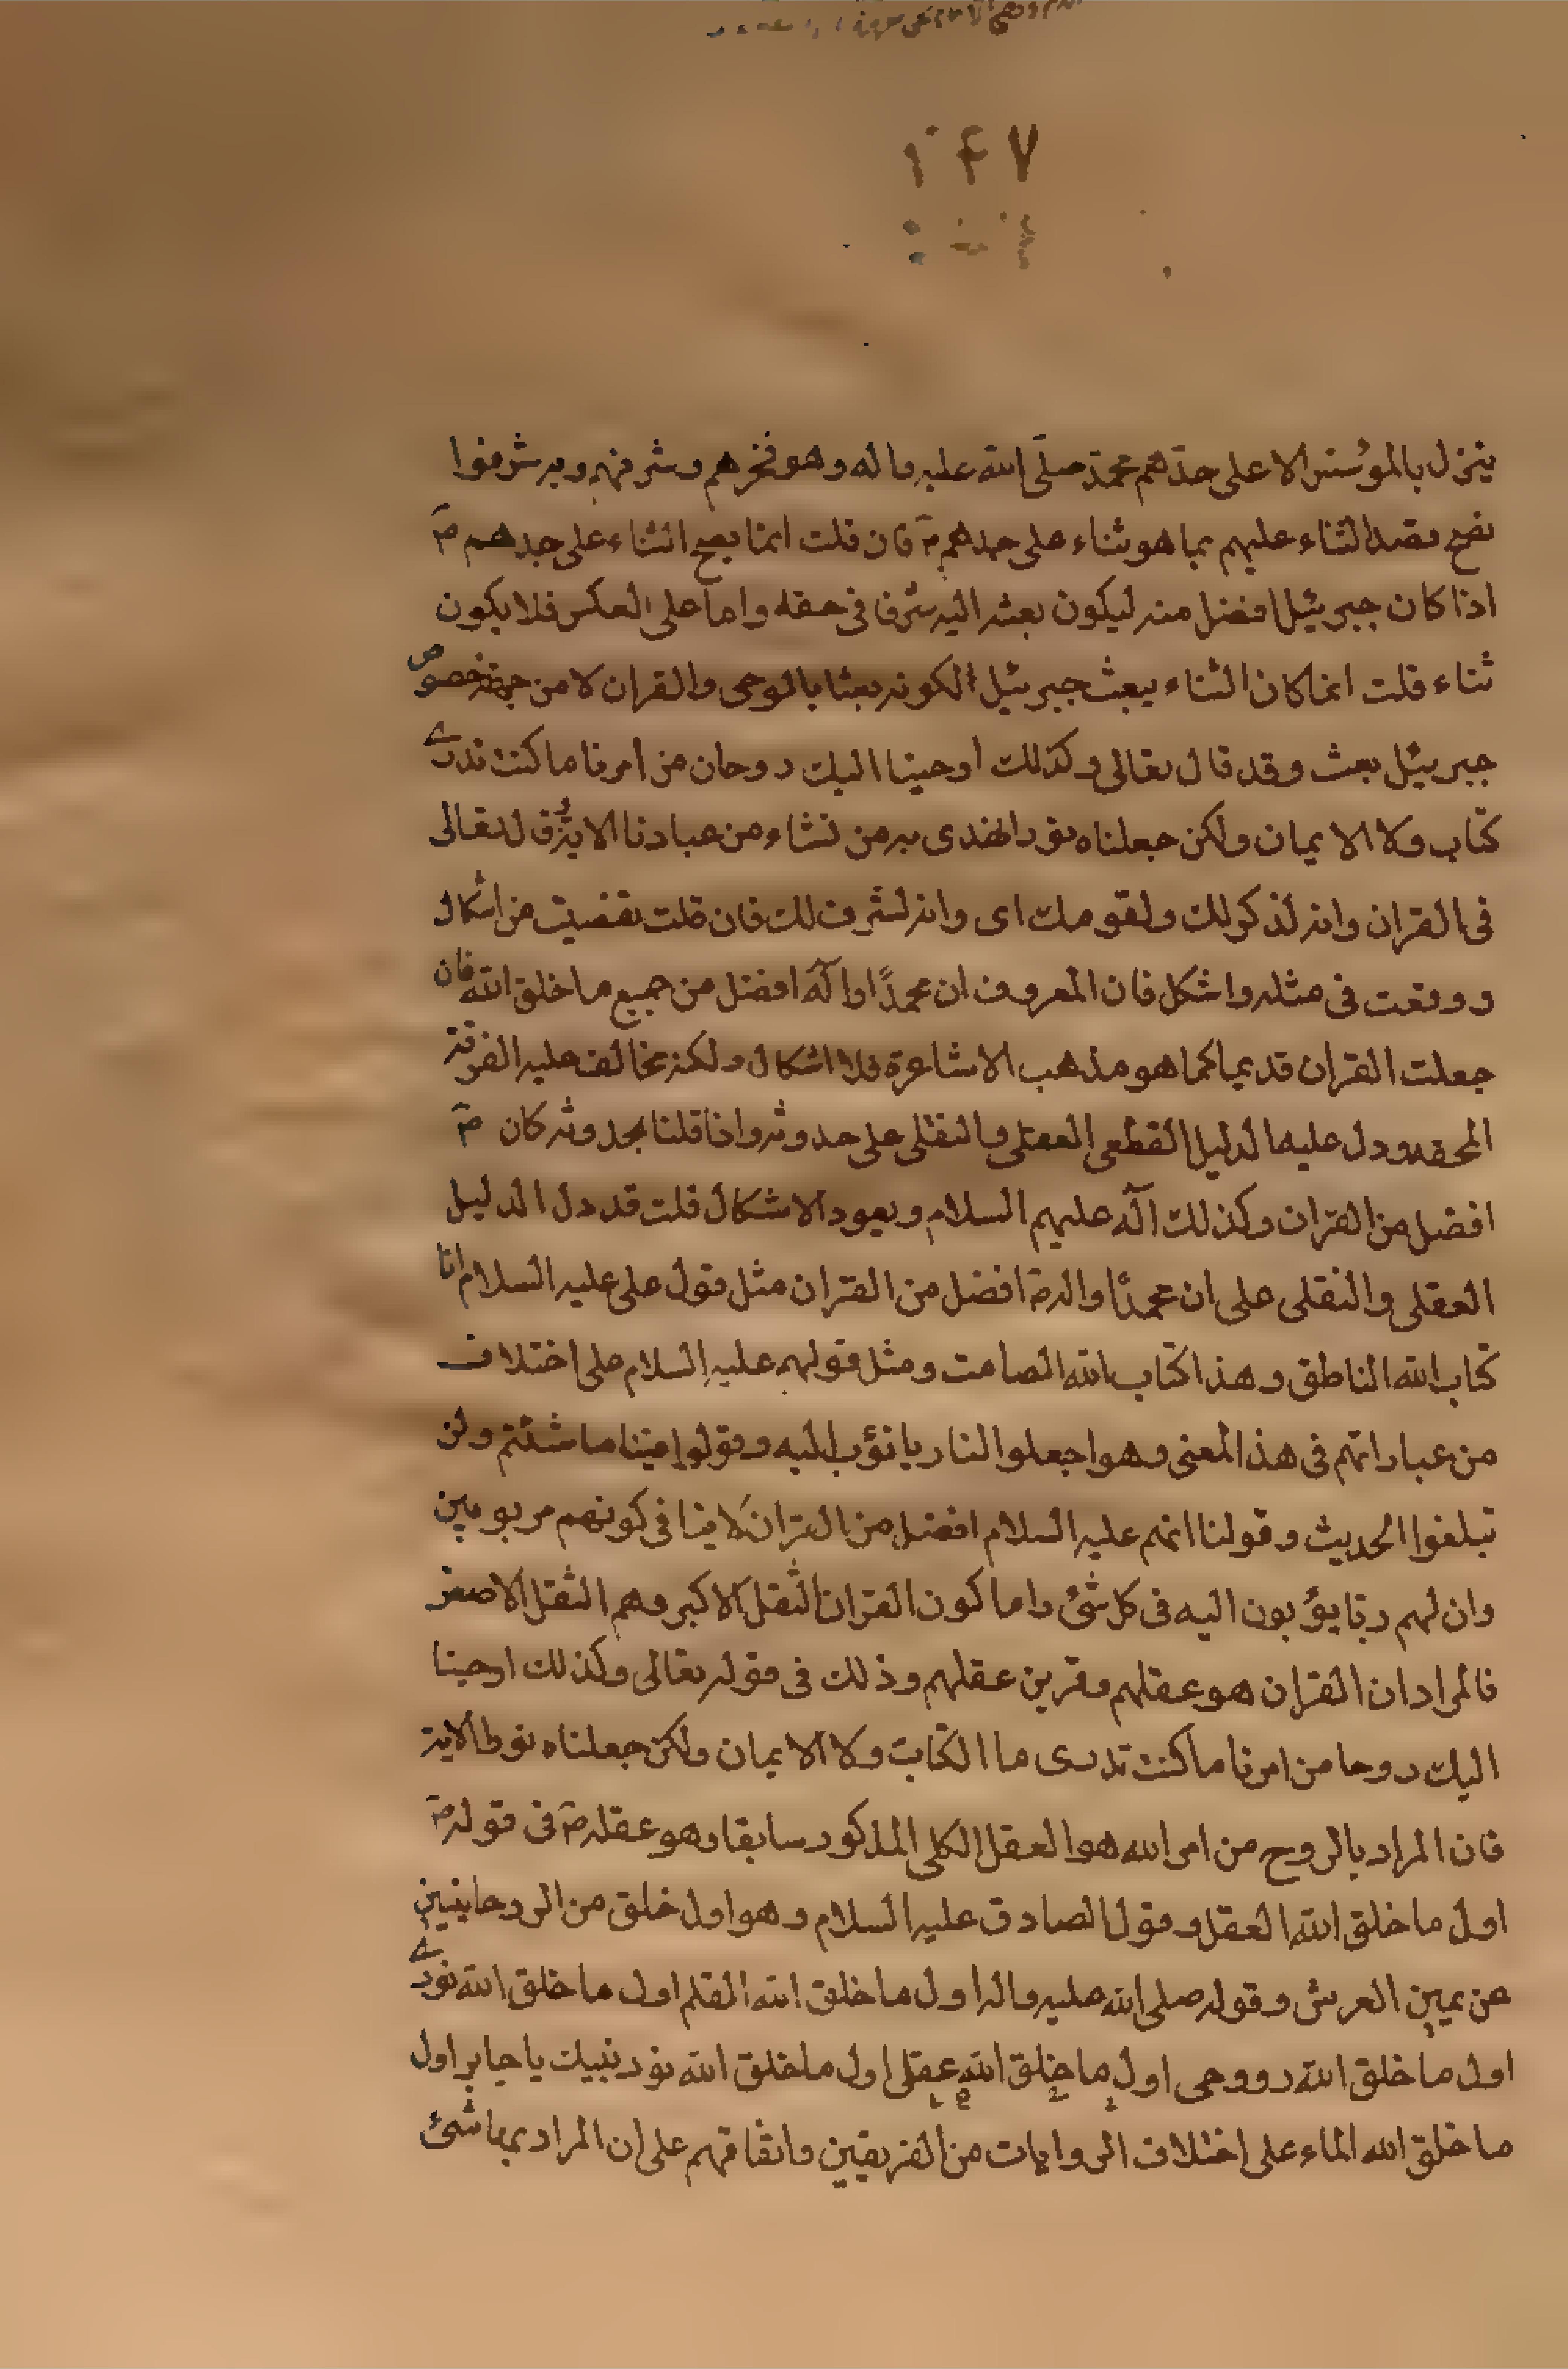 ۱۴۷
ينزل بالمؤسس الا على جدّهم محمّد صلّى الله عليه واله وهو فخرهم وشرفهم وبه شرفوا
فصح قصد الثناء عليهم بما هو ثناء على جدهم ص فان قلت انما يصح الثناء على جدهم ص
اذا كان جبرئيل افضل منه ليكون بعثه اليه شرفا فى حقه واما على العكس فلا يكون
ثناء قلت انما كان الثناء ببعث جبرئيل لكونه بعثا بالوحى والقران لا من جهة خصوص
جبرئيل بعث وقد قال تعالى وكذلك اوحينا اليك روحان من امرنا ما كنت تدرى
كتاب ولا الايمان ولكن جعلناه نورا نهدى به من نشاء من عبادنا الاية وقال تعالى
فى القران وانه لذكر لك ولقومك اى وانه لشرف لك فان قلت تفصيت من اشكال
ووقعت فى مثله واشكل فان المعروف ان محمدًا وآله افضل من جميع ما خلق الله فان
جعلت القران قديما كما هو مذهب الاشاعرة فلا اشكال ولكنه تخالف عليه الفرقة
المحقه ودل عليه الدليل القطعى العقلى والنقلى على حدوثه واذا قلنا بحدوثه كان ص
افضل من القران وكذلك آله عليهم السلام ويعود الاشكال قلت قد دل الدليل
العقلى والنقلى على ان محمدًا واله ص افضل من القران مثل قول على عليه السلام انا
كتاب الله الناطق وهذا كتاب الله الصامت ومثل قولهم عليه السلام على اختلاف
من عباراتهم فى هذا المعنى وهو اجعلوا لنا ربا نؤب اليه وقولوا فينا ما شئتم ولن
تبلغوا الحديث وقولنا انهم عليه السلام افضل من القران لا ينافى كونهم مربوبين
وان لهم ربّا يؤبون اليه فى كل شئ واما كون القران الثقل الاكبر وهم الثقل الاصغر
فالمراد ان القران هو عقلهم وقرين عقلهم وذلك فى قوله تعالى وكذلك اوحينا
اليك روحا من امرنا ما كنت تدرى ما الكتاب ولا الايمان ولكن جعلناه نورا الاية
فان المراد بالروح من امر الله هو العقل الكلى المذكور سابقا وهو عقله ص فى قوله ص
اول ما خلق الله العقل وقول الصادق عليه السلام وهو اول خلق من الروحانيين
عن يمين العرش وقوله صلى الله عليه واله اول ما خلق الله القلم اول ما خلق الله نورى
اول ما خلق الله رووحى اول ما خلق الله عقلى اول ما خلق الله نور نبيك يا جابر اول
ما خلق الله الماء على اختلاف الروايات من الفريقين واتفاقهم على ان المراد بها شئ